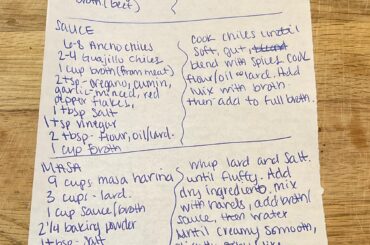 broth (beef)
SAUCE
6-8 Ancho chiles
2-4 Guajillo chiles
1 cup broth (from meat)
2 tsp - oregano, cumin,
garlic-minced, red
pepper flakes,
1 tbsp salt
1 tsp vinegar
2 tbsp - flour, oil/lard.
1 cup Broth
Cook chiles until
soft, gut,
blend with spices. Cook
flour/oil or lard. Add
Mix with broth.
then add to full broth.
MASA
9 cups masa harina
3 cups - lard.
1 cup sauce/broth
2 1/4 baking powder
1 tbsp - salt
whip lard and salt
until fluffy. Add
dry ingredients, mix
with hands, add broth/
sauce, then water
until creamy smooth,